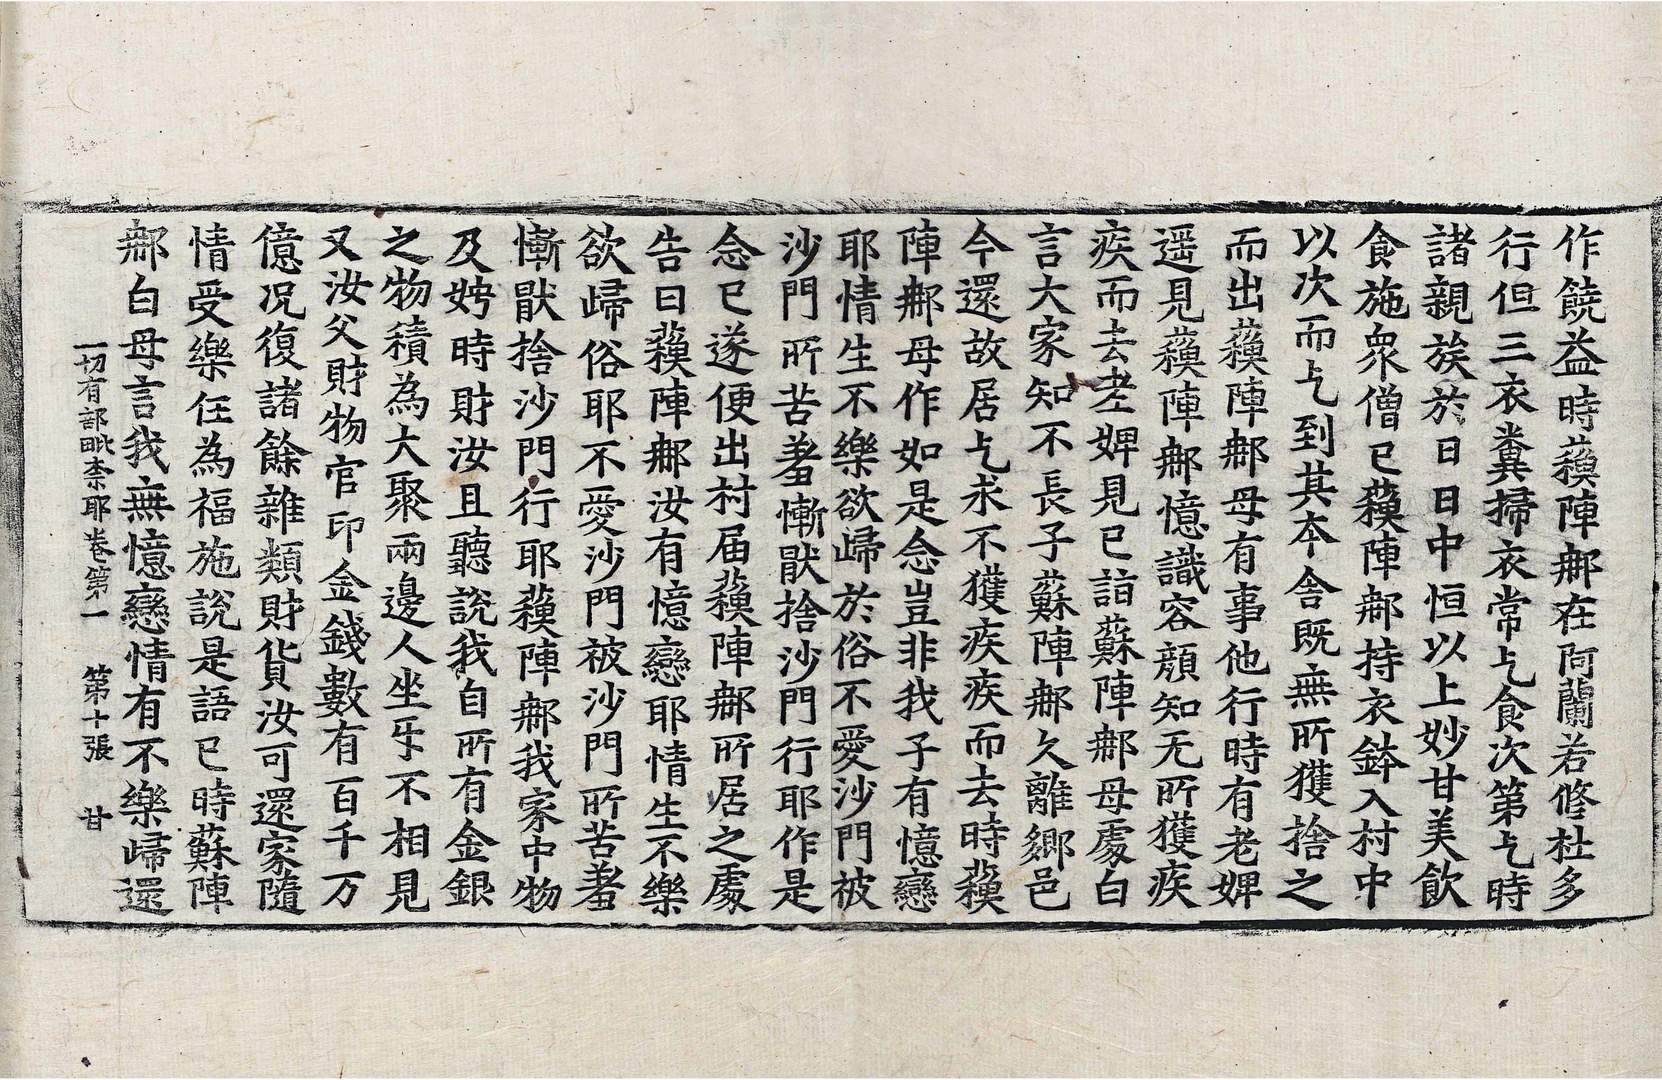 作饒益時蘓陣𨚗在阿蘭若修杜多
行但三衣糞掃衣常乞食次第乞時
諸親族於日日中恒以上妙甘美飲
食施衆僧已蘓陣𨚗持衣鉢入村中
以次而乞到其本舍既無所獲捨之
而出蘓陣𨚗母有事他行時有老婢
遥見蘓陣𨚗憶識容顔知无所獲疾
疾而去老婢見已詣蘇陣𨚗母處白
言大家知不長子蘇陣𨚗久離郷邑
今還故居乞求不獲疾疾而去時蘓
陣𨚗母作如是念豈非我子有憶戀
耶情生不樂欲歸於俗不愛沙門被
沙門所苦羞慚猒捨沙門行耶作是
念已遂便出村届蘓陣𨚗所居之處
告曰蘓陣𨚗汝有憶戀耶情生不樂
欲歸俗耶不愛沙門被沙門所苦羞
慚猒捨沙門行耶蘓陣𨚗我家中物
及娉時財汝且聽說我自所有金銀
之物積為大聚兩邊人坐㸦不相見
又汝父財物官印金錢數有百千万
億况復諸餘雜類財貨汝可還家隨
情受樂任為福施說是語已時蘇陣
𨚗白母言我無憶戀情有不樂歸還
一切有部毗柰耶卷第一　第十張　甘